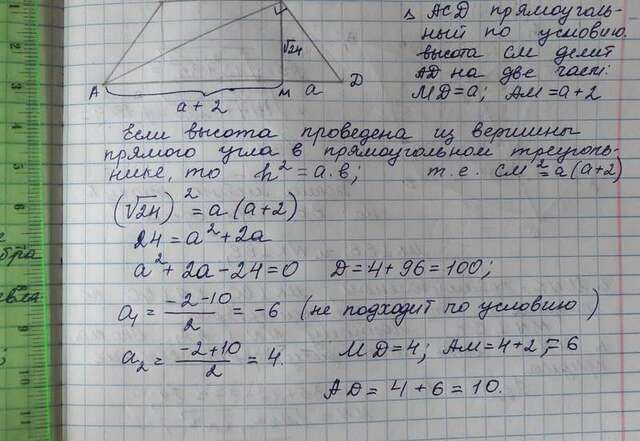 △ ACD прямоуголь-
ный по условию.
высота CM делит
AD на две части:
MD=a; AM=a+2
√24
A
M
a
D
a+2
Если высота проведена из вершины
прямого угла в прямоугольном треуголь-
нике, то h²=a·b; т.е. CM²=a(a+2)
(√24)²=a(a+2)
24=a²+2a
a²+2a-24=0 D=4+96=100;
a₁=(-2-10)/2=-6 (не подходит по условию)
a₂=(-2+10)/2=4. MD=4; AM=4+2=6
AD=4+6=10.